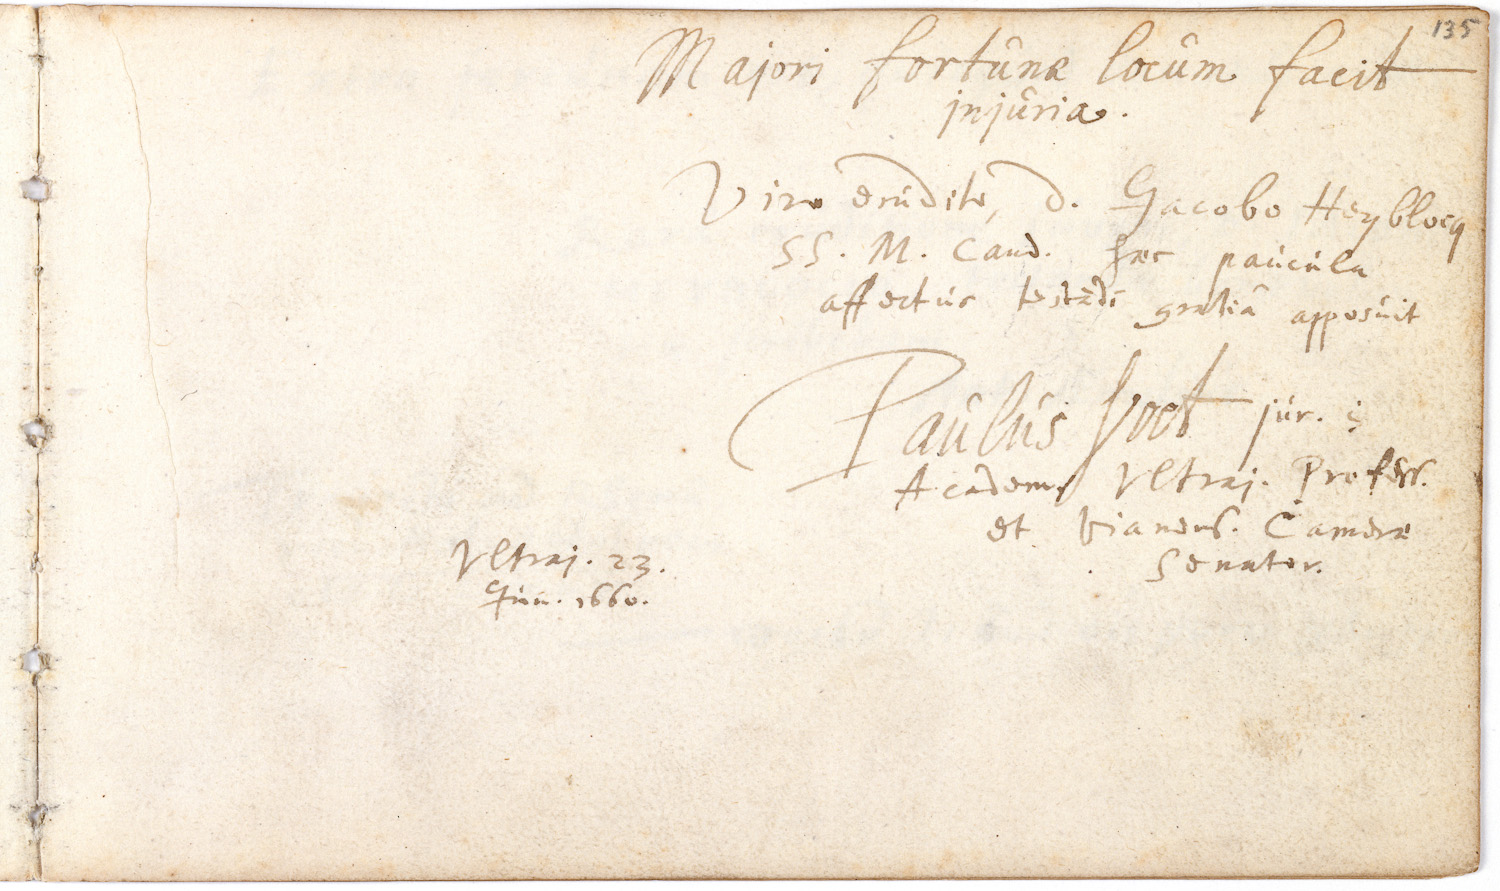 135
Majori fortunæ locum facit
injuria.
Viro erudito, D. Jacobo Heyblocq
SS. M. Cand. hæc paucula
affectus testãdi gratiâ apposuit
Paulus Voet jur. i
Academ. Ultraj. Profess.
et Vianens. Cameræ
Senator.
Ultraj. 23.
Jun. 1660.